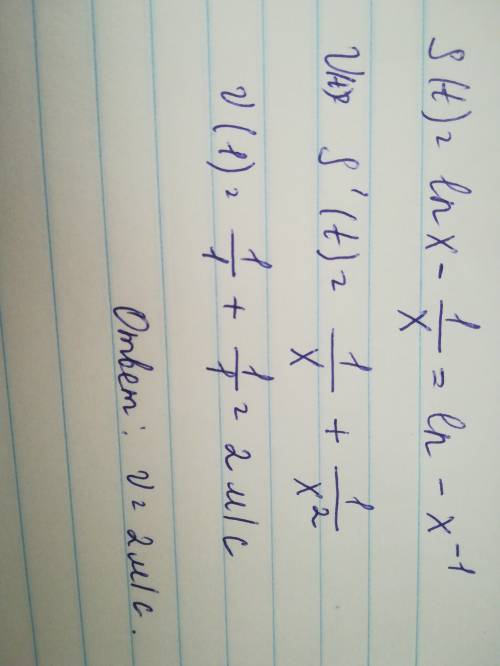 S(t) = ln x - 1/x = ln - x^-1
V(t)= S'(t) = 1/x + 1/x^2
V(1) = 1/1 + 1/1 = 2 м/с
Ответ: V = 2 м/с.